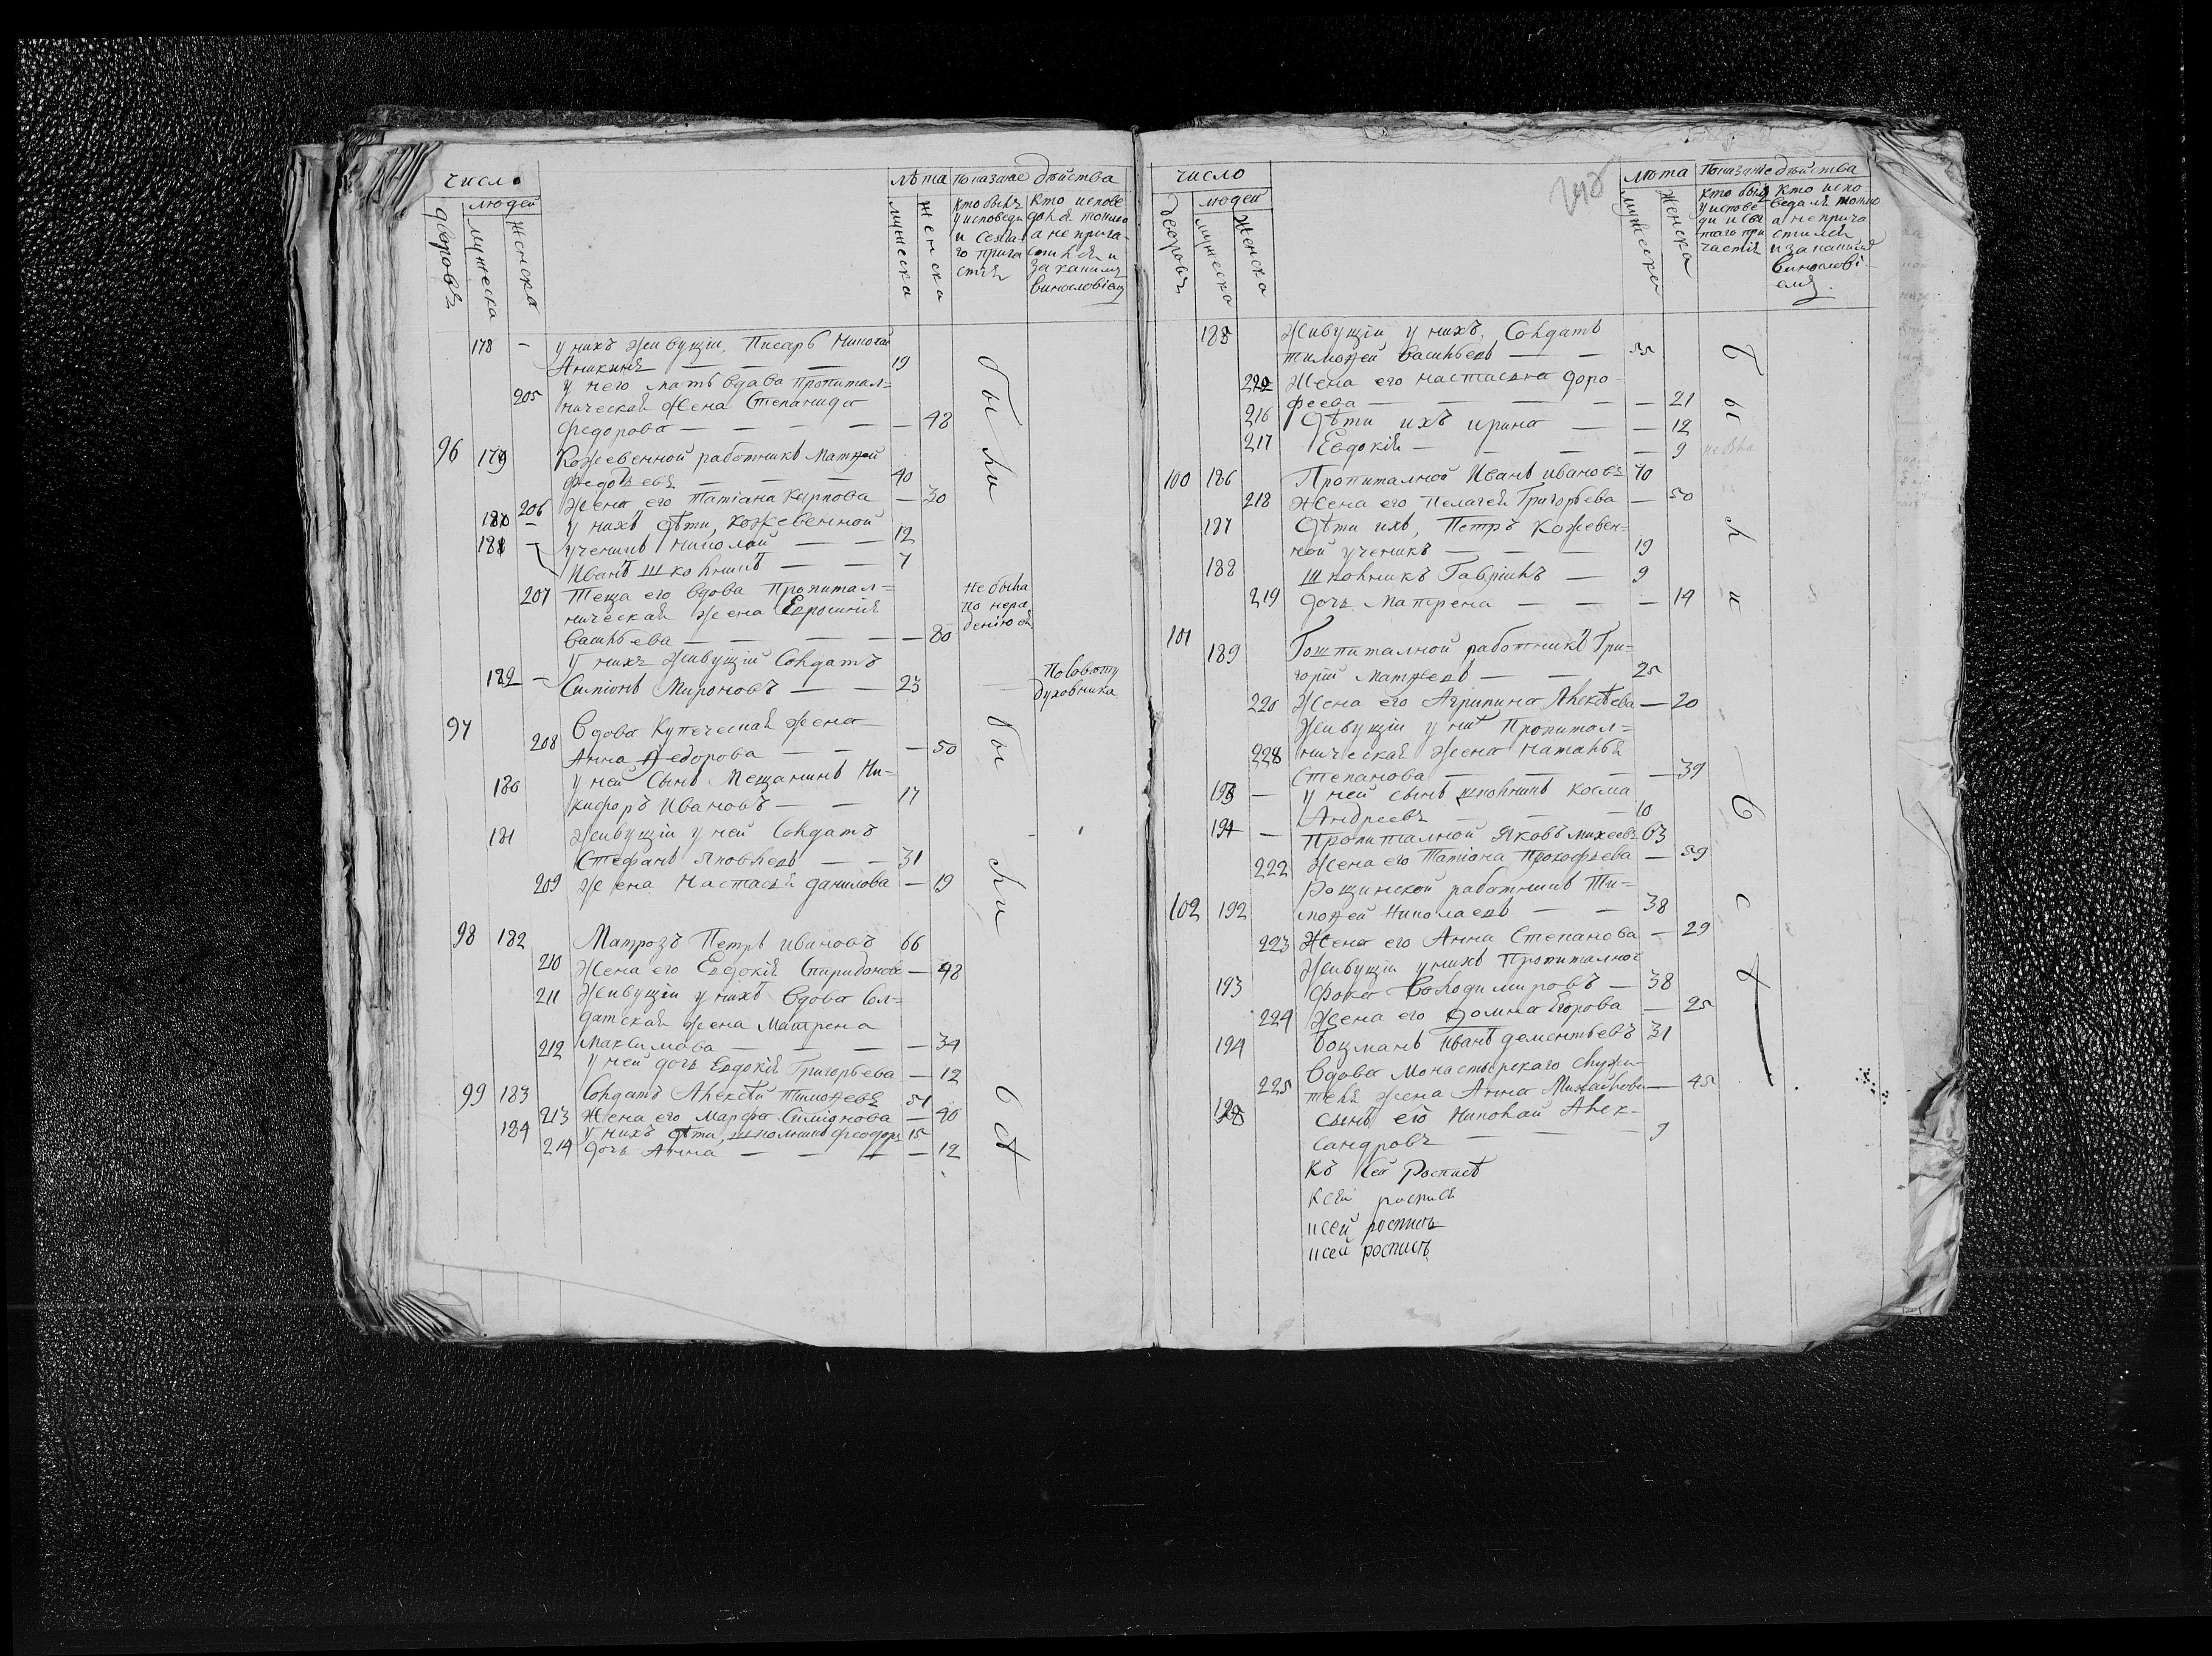 число
людей
дворовъ
мужеска
женска
лѣта
мужеска
женска
показание дѣйства
кто былъ
у исповеди
и Свята-
го прича
стія
кто испове
дался токмо
а не прича-
стился и
за какимъ
винословіем
178 — у нихъ живущіи, Писарь Николай
Аникинъ — — — 19
205 у него мать вдава Пропитал=
ническая жена Степанида
Федорова — — — — 48
были
96 179 Кожевенной работникъ Матѳей
Федоѣевъ — — — 40
206 Жена его Татіана Карпова — 30
180 — у нихъ дѣти, кожевенной
ученикъ Николай — — 12
181 — Иванъ школникъ — — 7
207 Теща его вдова Пропитал=
ническая жена Евросинія
Васильева — — — — 80
не была
по нера
денію ея
182 — У нихъ живущій Солдатъ
Симіонъ Мироновъ — — 23
По Совѣту
духовника
97 208 Вдова Купеческая жена
Анна Ѳедорова — — — 50
180 у ней Сынъ Мещанинъ Ни-
кифоръ Ивановъ — — 17
181 Живущіи у ней Солдатъ
Стефанъ Яковлевъ — — 31
209 жена Настасья Данилова — 19
были
98 182 Матрозъ Петръ Ивановъ 66
210 Жена его Евдокія Спиридонова — 48
211 Живущіи у нихъ вдова Сол=
датская жена Матрена
Максимова — — — — 34
212 у ней дочь Евдокія Григорьева — 12
99 183 Солдатъ Алексѣй Тимоѳевъ 51
213 Жена его Марфа Симіонова — 40
184 у нихъ дѣти, школникъ Феодоръ 15
214 дочь Анна — — — — 12
число
людей
дворовъ
мужеска
женска
лѣта
мужеска
женска
Показание дѣйства
кто былъ
у испове
ди и Свя
таго при
частія
кто испо-
ведался токмо
а не прича
стился
и за какимъ
винослові-
емъ
185 Живущіи у нихъ, Солдатъ
тимоѳей Васильевъ — — 35
Жена его настасья доро-
феева — — — — 21
216 Дѣти ихъ ирина — — 12
217 Евдокія — — — 9
100 186 Пропиталной Иванъ ивановъ 70
218 Жена его Пелагея Григорьева — 50
187 Дѣти ихъ, Петръ кожевен=
ной ученикъ — — — 19
188 школникъ Гавріилъ — 9
219 дочь Матрена — — — 14
были
101 189 Гошпиталной работникъ Гри=
горій Матѳеевъ — — 25
220 Жена его Агрипина Алексѣева — 20
Живущіи у них Пропитал=
ническая жена Наталья
Степанова — — — — 39
— у ней сынъ школникъ косма
Андреевъ — — — 10
191 — Пропиталной Яковъ михеевъ 63
222 Жена его Татіана Прокофьева — 59
102 192 Рощинской работникъ Ти=
моѳей Николаевъ — — 38
223 Жена его Анна Степанова — 29
193 Живущіи у нихъ Пропиталной
Фока Володимировъ — 38
224 Жена его Домна Егорова — 25
194 Боцманъ Иванъ дементьевъ 31
225 Вдова Монастырскаго служи-
теля жена Анна Михайлова — 45
сынъ ея Николай Алек-
сандровъ — — — 9
къ Сей Росписѣ
ксей росписе
ксей росписъ
ксей росписъ